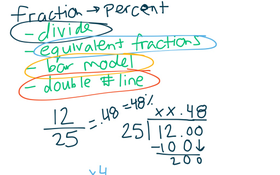 fraction → Percent
- divide
- equivalent fractions
- bar model
- double # line
12/25 = .48 = 48%
xx.48
25 | 12.00
-100↓
200